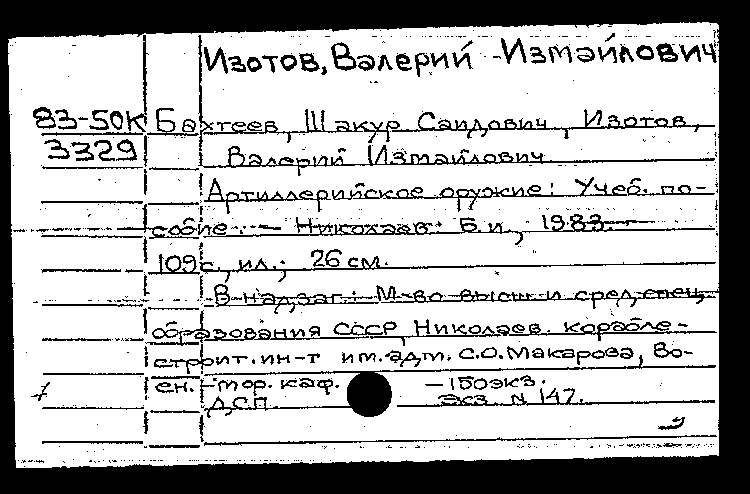 Изотов, Валерий Измайлович
83-50К Бахтеев, Шакур Саидович, Изотов,
3329 Валерий Измайлович
Артиллерийское оружие: Учеб. по-
собие. — Николаев: Б.и., 1983.—
109с., ил.; 26 см.
В надзаг.: М-во высш. и сред. спец.
образования СССР, Николаев. корабле-
строит. ин-т им. адм. С.О. Макарова, Во-
ен.-мор. каф. — 150экз.
ДСП экз. N 147.